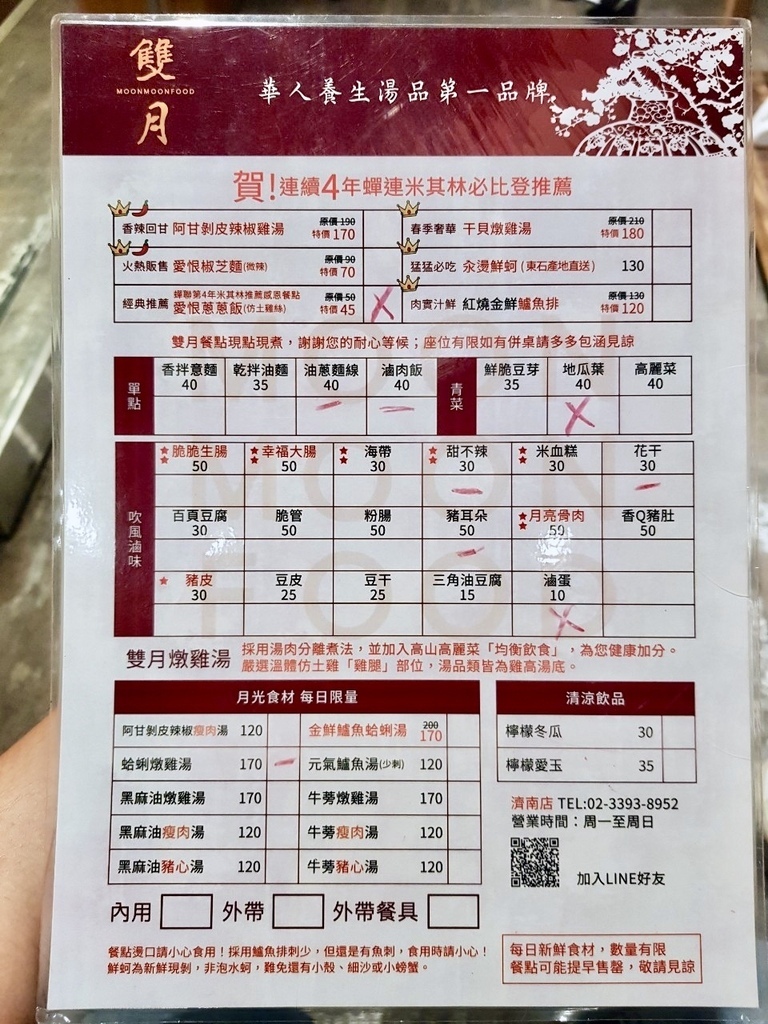 雙月
MOONMOONFOOD
華人養生湯品第一品牌
賀!連續4年蟬連米其林必比登推薦
香辣回甘 阿甘剝皮辣椒雞湯 原價190 特價170
春季奢華 干貝燉雞湯 原價210 特價180
火熱販售 愛恨椒芝麵(微辣) 原價90 特價70
猛猛必吃 汆燙鮮蚵(東石產地直送) 130
經典推薦 蟬聯第4年米其林推薦感恩餐點 愛恨蔥蔥飯(仿土雞絲) 原價50 特價45
肉實汁鮮 紅燒金鮮鱸魚排 原價130 特價120
雙月餐點現點現煮，謝謝您的耐心等候；座位有限如有併桌請多多包涵見諒
單點 香拌意麵 乾拌油麵 油蔥麵線 滷肉飯 青菜 鮮脆豆芽 地瓜葉 高麗菜
40 35 40 40 35 40 40
吹風滷味
★★脆脆生腸 ★★幸福大腸 ★★海帶 ★★甜不辣 ★★米血糕 花干
50 50 30 30 30 30
百頁豆腐 脆管 粉腸 豬耳朵 ★★月亮骨肉 香Q豬肚
30 50 50 50 50 50
★豬皮 豆皮 豆干 三角油豆腐 滷蛋
30 25 25 15 10
雙月燉雞湯 採用湯肉分離煮法，並加入高山高麗菜「均衡飲食」，為您健康加分。
嚴選溫體仿土雞「雞腿」部位，湯品類皆為雞高湯底。
月光食材 每日限量
阿甘剝皮辣椒瘦肉湯 120 金鮮鱸魚蛤蜊湯 200 170
蛤蜊燉雞湯 170 元氣鱸魚湯(少刺) 120
黑麻油燉雞湯 170 牛蒡燉雞湯 170
黑麻油瘦肉湯 120 牛蒡瘦肉湯 120
黑麻油豬心湯 120 牛蒡豬心湯 120
清涼飲品
檸檬冬瓜 30
檸檬愛玉 35
濟南店 TEL:02-3393-8952
營業時間：周一至周日
加入LINE好友
內用 外帶 外帶餐具
餐點燙口請小心食用！採用鱸魚排刺少，但還是有魚刺，食用時請小心！
鮮蚵為新鮮現剝，非泡水蚵，難免還有小殼、細沙或小螃蟹。
每日新鮮食材，數量有限
餐點可能提早售罄，敬請見諒
MOON
MOON
FOOD